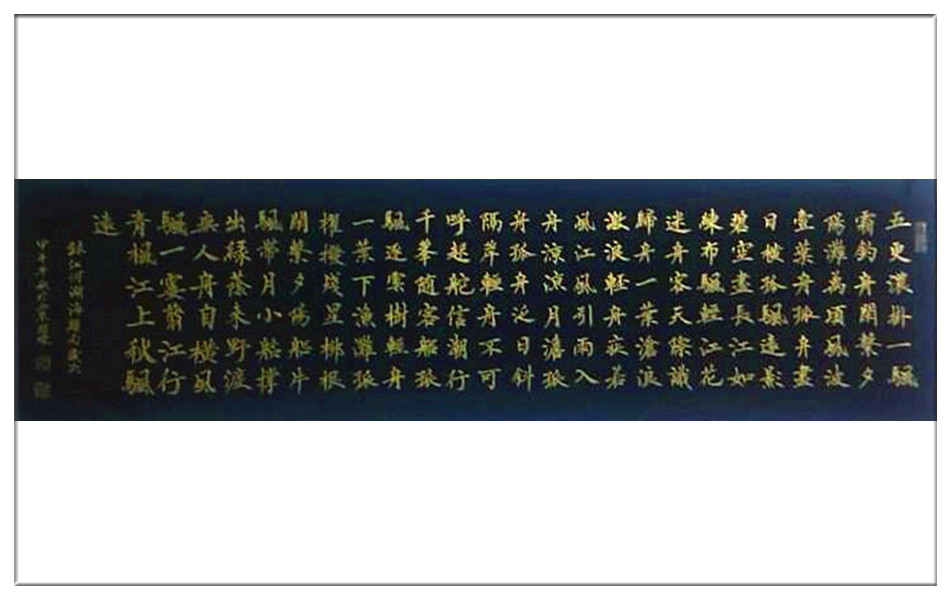 五更濃掛一颿
霜釣舟閒繫夕
陽灘萬頃風波
壹葉舟孤舟盡
日橫孤颿遠影
碧空盡長江如
練布颿輕江花
迷舟客天際識
歸舟一葉滄浪
激浪輕舟疾若
風江風引雨入
舟涼涼月澹孤
舟孤舟泛日斜
隔岸輕舟不可
呼起舵信潮行
千峯隨客船孤
颿逐雲樹輕舟
一葉下漁灘孤
櫂撥殘星柳根
閒繫夕陽船片
颿帶月小船撐
出綠蔭來野渡
無人舟自橫風
颿一霎翦江行
青楓江上秋颿
遠